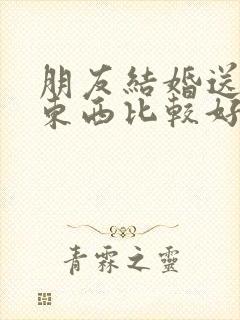 朋友結婚送
東西比較好
青霖之靈